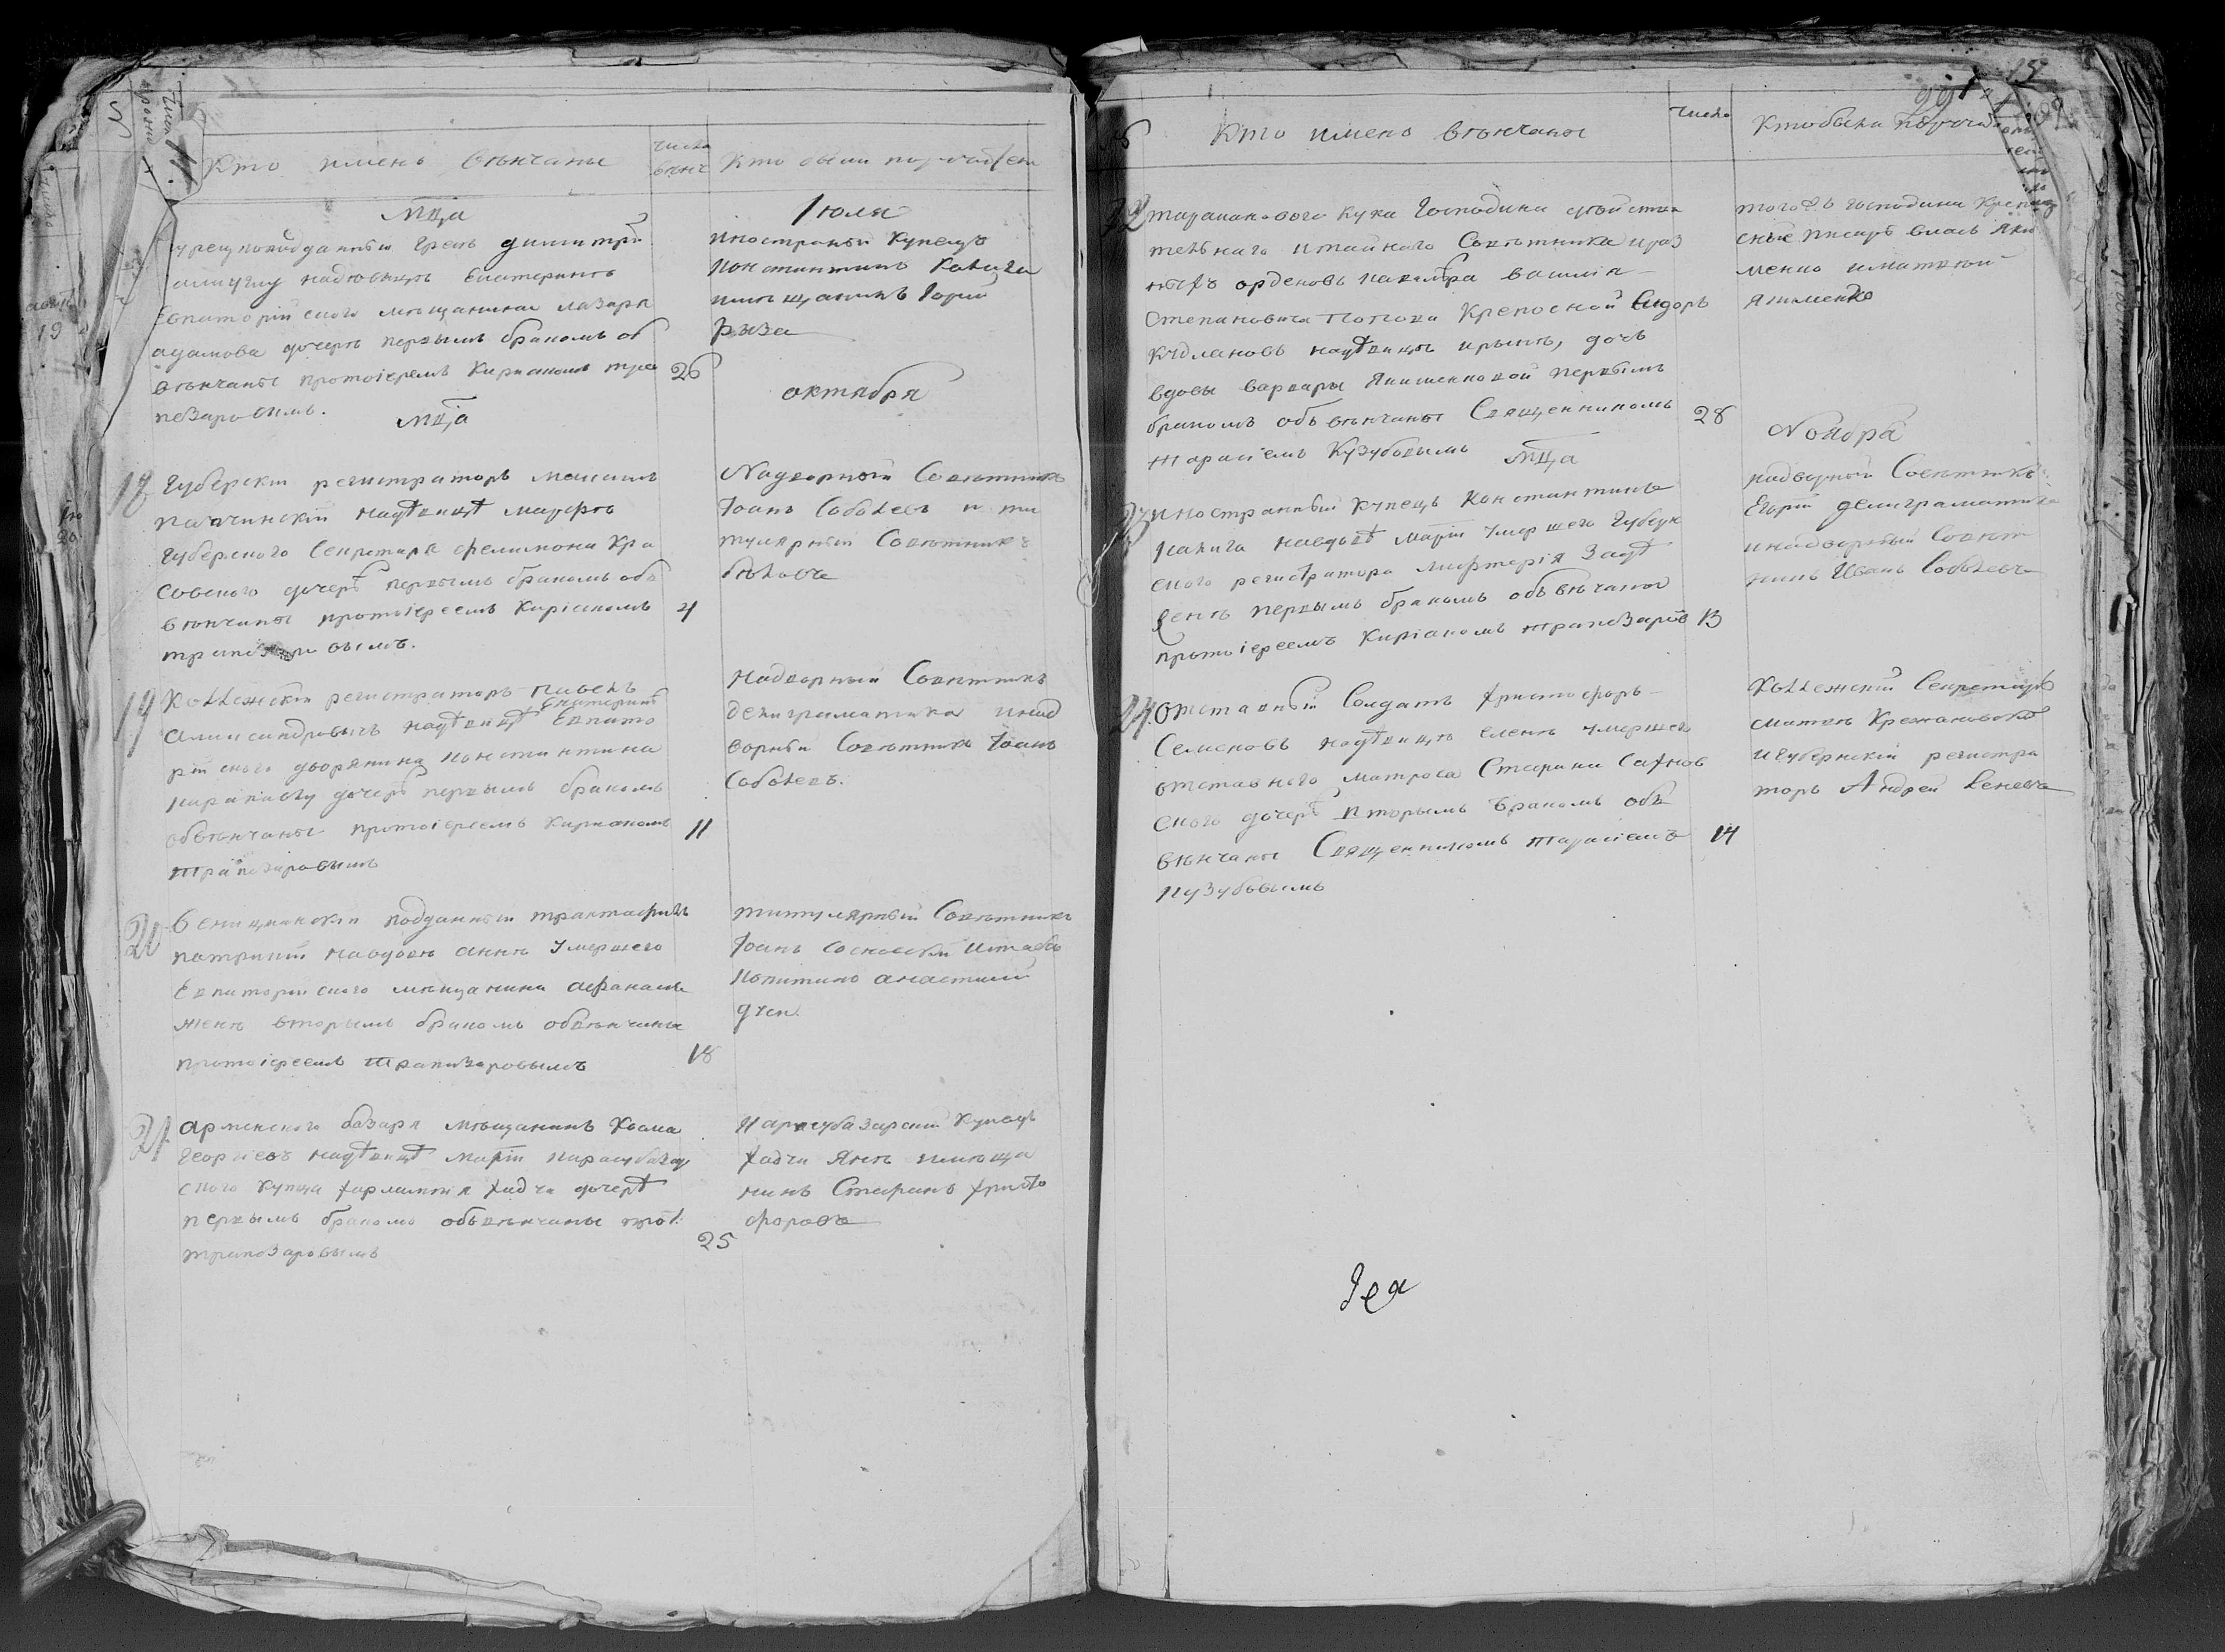 Кто имень венчаны
числа
венч
Кто были поручител
Мца
Іюля
Турецкоподданный Грекъ димитрій
надѣвицѣ Екатеринѣ
Евпаторійского мещанина лазаря
адамова дочерѣ первымъ бракомъ об
венчаны протоіереемъ Киріакомъ тра
пезаровимъ.
26
иностраный Купецъ
Константинъ Какига
имещанинъ Горги
Рыза
Мца
октября
18
Губерски регистраторъ максимъ
пачинскій надѣвицѣ марфѣ
Губерского Секретаря филимона Кра
совского дочерѣ первымъ бракомъ объ
венчаны протоіереемъ Киріакомъ
трапезаровымъ.
4
Надворной Советникъ
Іоанъ Соболевъ и ти
тулярный Советникъ
бѣловъ
19
Коллежскій регистраторъ павелъ
Екатеринѣ
Александровычъ надѣвицѣ Евпато
рійского дворянина Константина
дочерѣ первымъ бракомъ
обвенчаны протоіереемъ Киріакомъ
трапезаровымъ
11
надворный Советникъ
делиграматика инад
ворный Советникъ Іоанъ
Соболевъ.
20
Веницианскій подданный
патрикій навдовѣ аннѣ Умершего
Евпаторійского мещанина афанасия
женѣ вторымъ бракомъ обвенчаны
протоіереемъ трапизаровымъ
18
титулярный Советникъ
Іоанъ Сосновскій иштабъ
Капитанъ анастасий
21
Арменского базара мещанинъ Козма
Георгіевъ надѣвицѣ Маріи Карасубазар
ского Купца харлампія хадчи дочерѣ
первымъ бракомъ объвенчаны прот:
трапезаровымъ
25
Карасубазарскій Купецъ
хадчи Янѣ имеща
нинъ Стефанъ христо
форовъ
Кто имено венчаны
Число
Кто были поручи
22
тараканового Кука Господина дѣйстви
тельного итайного Советника ираз
ныхъ орденовъ Кавалера василія
Степановича Попова Крепосной Сидоръ
надѣвицѣ иринѣ, дочь
вдовы варвары Якименковой первымъ
бракомъ объвенчаны Священникомъ
тарасіемъ Кузубовымъ
28
тогожъ господина Крепост
сные писарь власъ Яки
менко иматвей
Якименко
Мца
Ноября
23
иностранный Купецъ Константинъ
Какига навдовѣ Маріи Умершего Губерн
ского регистратора
женѣ первымъ бракомъ объвенчаны
протоіереемъ Киріакомъ трапезаров
13
надворный Советникъ
Егорій делиграматика
инадворный Совет
никъ Иванъ Соболевъ
24
отставный Солдатъ христофоръ
Семеновъ надѣвицѣ еленѣ умершего
отставного матроса Стефана Сахнов
ского дочерѣ вторымъ бракомъ объ
венчаны Священникомъ тарасіемъ
Кузубовымъ
14
Коллежскій Секретарь
игубернскій регистра
торъ Андрей